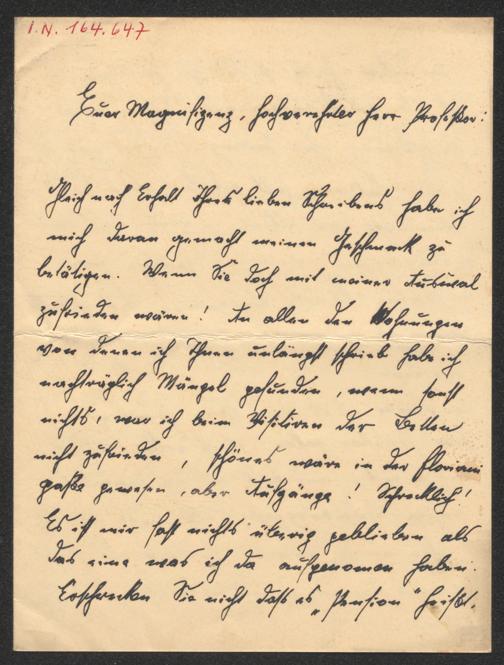 I.N. 164.647
Euer Magnifizenz, hochverehrter Herr Professor!
Gleich nach Erhalt Ihres lieben Schreibens habe ich
mich daran gemacht meinen Geschmack zu
betätigen. Wenn Sie doch mit meiner Auswal
zufrieden wären! An allen den Wohnungen
von denen ich Ihnen unlängst schrieb habe ich
nachträglich Mängel gefunden, wenn sonst
nichts, war ich beim Visitiren der Betten
nicht zufrieden, schönes wäre in der Floriani
gaße gewesen, aber Aufgänge! Schrecklich!
Es ist mir fast nichts übrig geblieben als
das eine was ich da aufgenomen haben.
Erschrecken Sie nicht dass es „Pension" heißt.